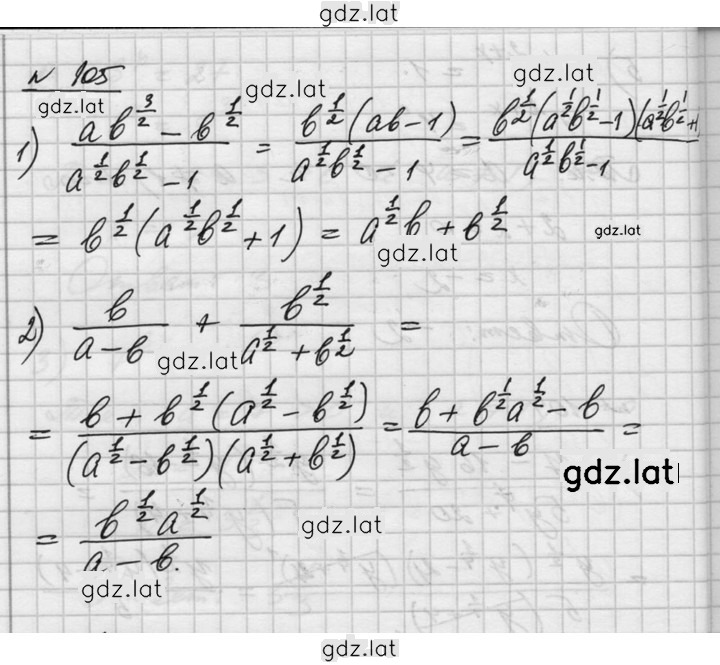 gdz.lat
№ 105
gdz.lat gdz.lat gdz.lat
1) (ab^{3/2} − b^{1/2})/(a^{1/2}b^{1/2} − 1) = (b^{1/2}(ab − 1))/(a^{1/2}b^{1/2} − 1) = (b^{1/2}(a^{1/2}b^{1/2} − 1)(a^{1/2}b^{1/2} + 1)/(a^{1/2}b^{1/2} − 1)
= b^{1/2}(a^{1/2}b^{1/2} + 1) = a^{1/2}b + b^{1/2}
gdz.lat gdz.lat
2) b/(a − b) + b^{1/2}/(a^{1/2} + b^{1/2}) =
gdz.lat
= (b + b^{1/2}(a^{1/2} − b^{1/2}))/((a^{1/2} − b^{1/2})(a^{1/2} + b^{1/2})) = (b + b^{1/2}a^{1/2} − b)/(a − b) =
gdz.lat
= (b^{1/2}a^{1/2})/(a − b.)
gdz.lat
gdz.lat
gdz.lat